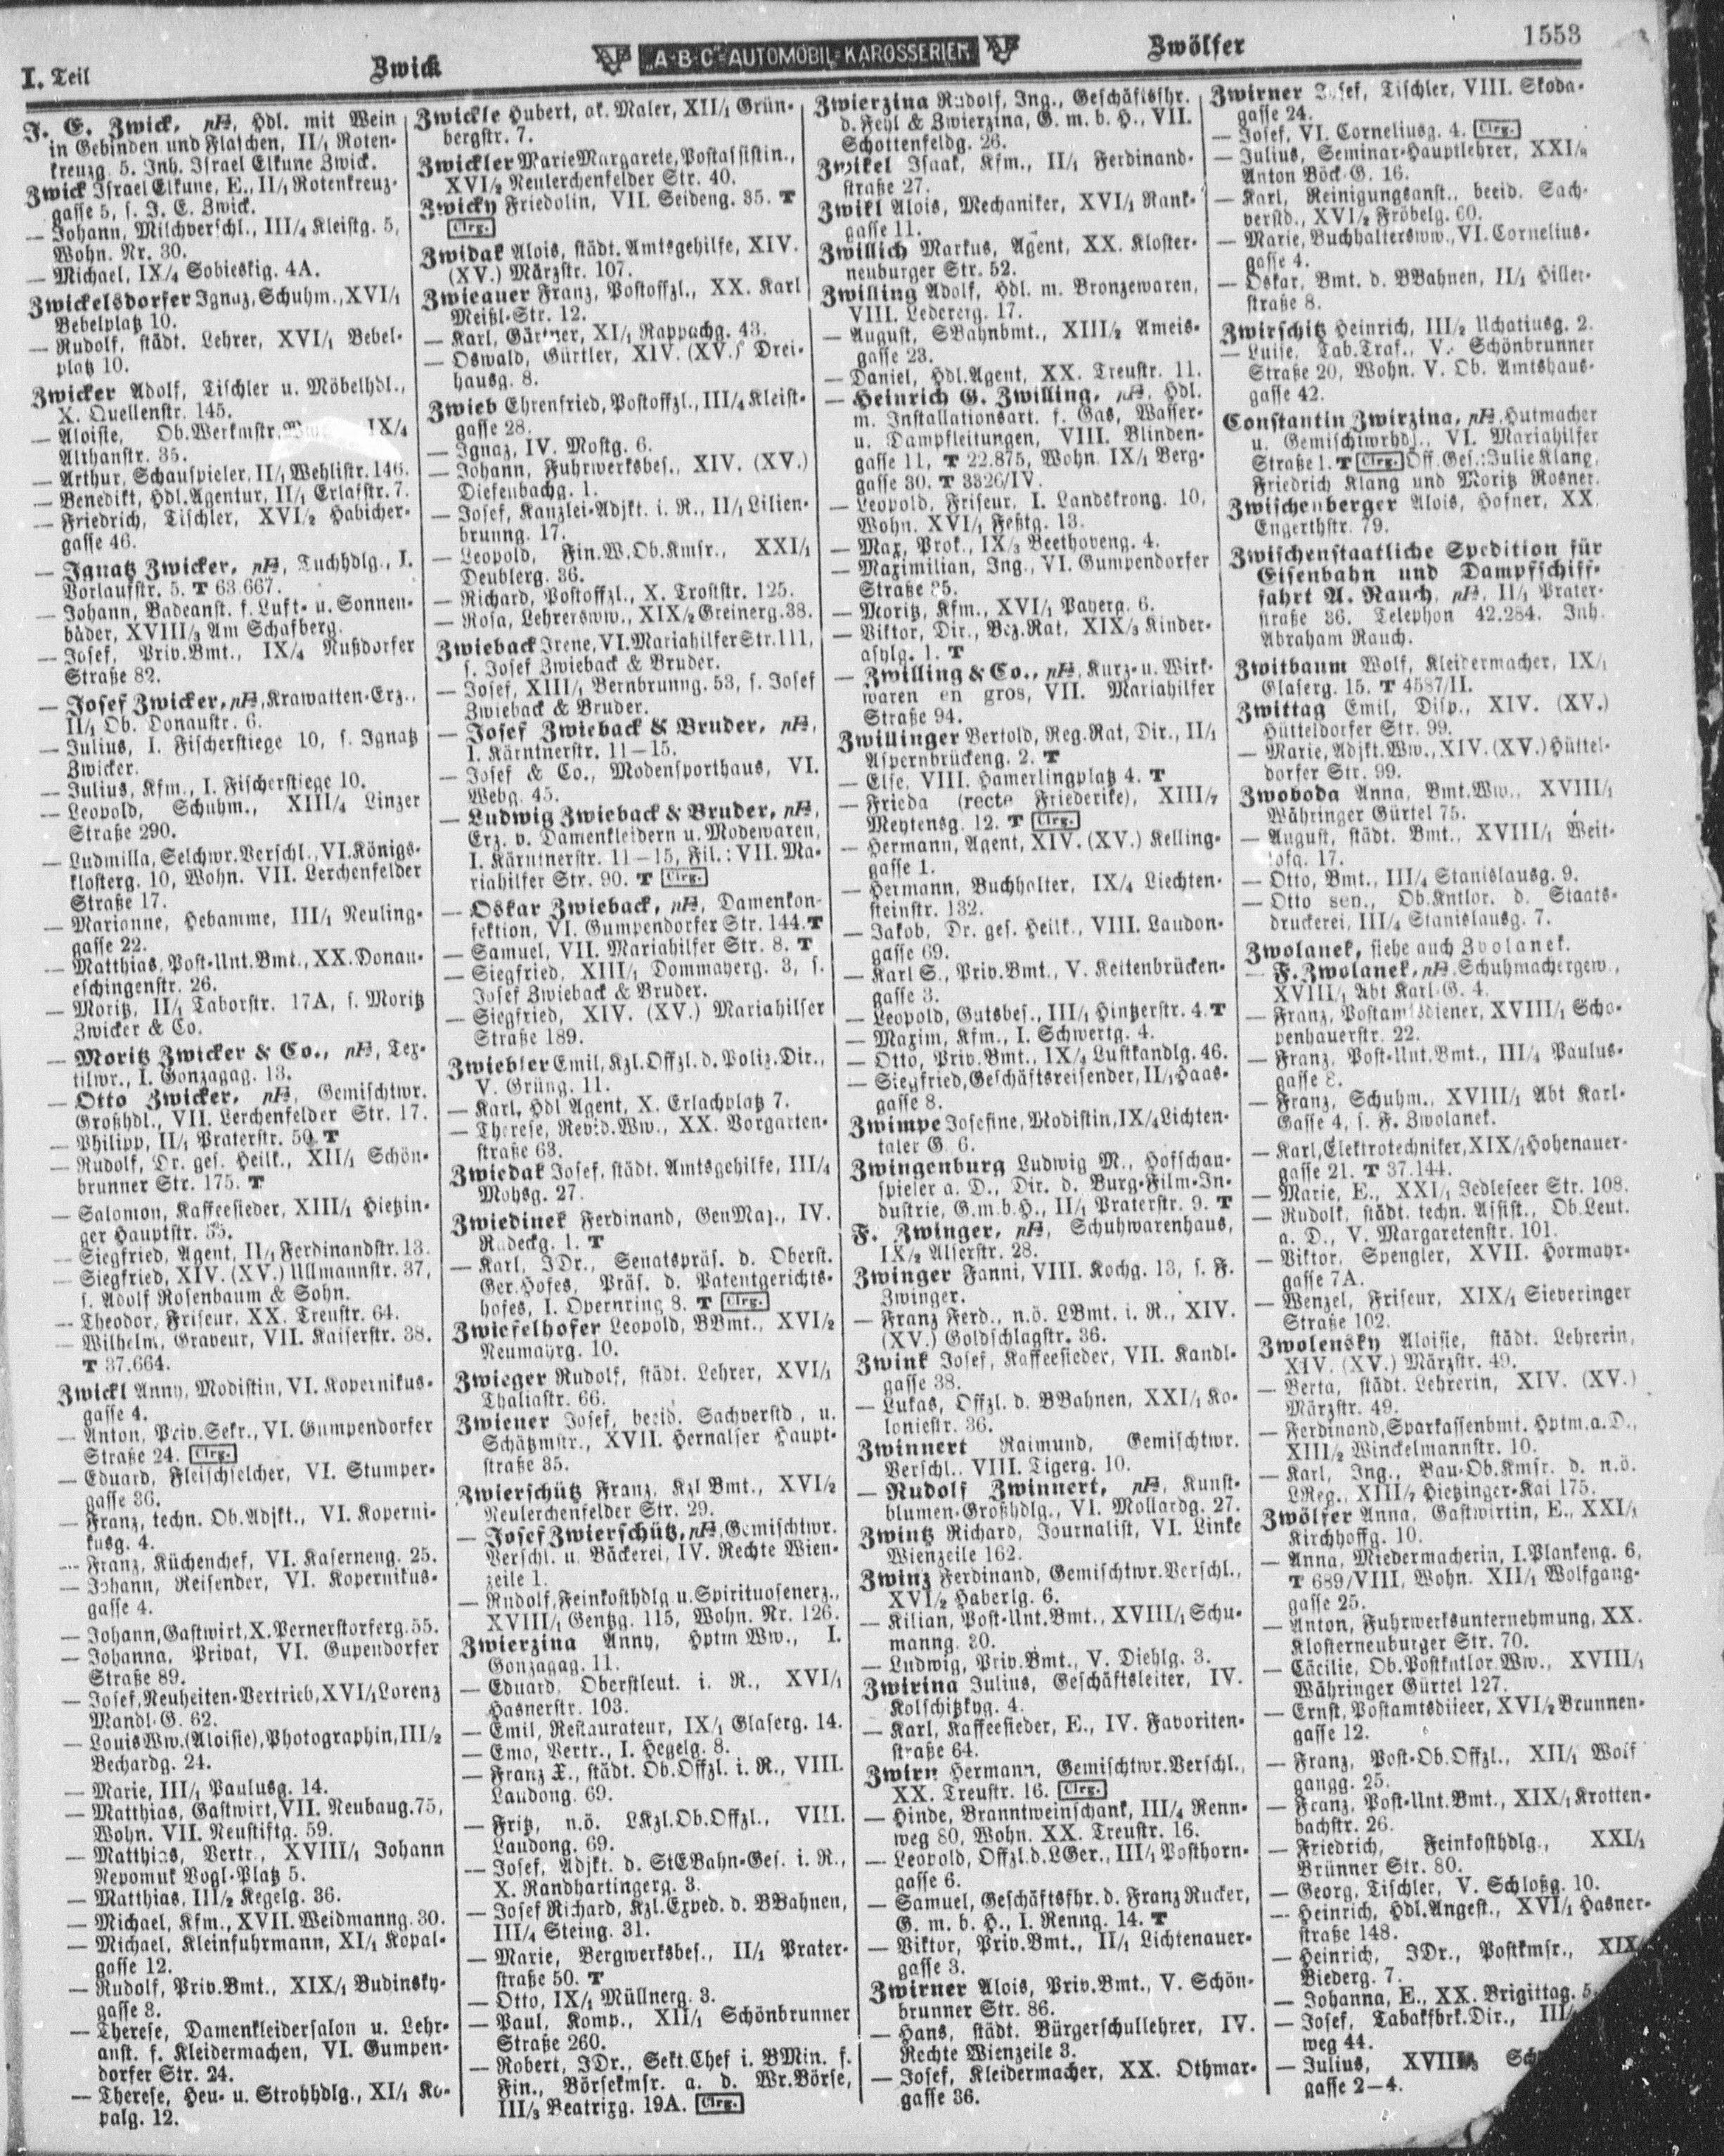 I. Teil
Zwick
„A-B-C"-AUTOMOBIL-KAROSSERIEN
Zwölfer
1553
J. E. Zwick, Hdl. mit Wein
in Gebinden und Flaschen, II/1 Roten-
kreuzg. 5. Inh. Israel Elkune Zwick.
Zwick Israel Elkune, E., II/1 Rotenkreuz-
gasse 5, s. J. E. Zwick.
— Johann, Milchverschl., III/4 Kleistg. 5,
Wohn. Nr. 30.
— Michael, IX/4 Sobieskig. 4A.
Zwickelsdorfer Ignaz, Schuhm., XVI/1
Bebelplatz 10.
— Rudolf, städt. Lehrer, XVI/1 Bebel-
platz 10.
Zwicker Adolf, Tischler u. Möbelhdl.,
X. Quellenstr. 145.
— Aloisie, Ob.Werkmstr. IX/4
Althanstr. 35.
— Arthur, Schauspieler, II/1 Wehlistr. 146.
— Benedikt, Hdl.Agentur, II/1 Erlafstr. 7.
— Friedrich, Tischler, XVI/2 Habicher-
gasse 46.
— Ignatz Zwicker, Tuchhdlg., I.
Vorlaufstr. 5. T 63.667.
— Johann, Badeanst. f. Luft- u. Sonnen-
bäder, XVIII/3 Am Schafberg.
— Josef, Priv.Bmt., IX/4 Nußdorfer
Straße 82.
— Josef Zwicker, Krawatten-Erz.,
II/1 Ob. Donaustr. 6.
— Julius, I. Fischerstiege 10, s. Ignatz
Zwicker.
— Julius, Kfm., I. Fischerstiege 10.
— Leopold, Schuhm., XIII/4 Linzer
Straße 290.
— Ludmilla, Selchwr.Verschl., VI. Königs-
klosterg. 10, Wohn. VII. Lerchenfelder
Straße 17.
— Marianne, Hebamme, III/1 Neuling-
gasse 22.
— Matthias, Post-Unt.Bmt., XX. Donau-
eschingenstr. 26.
— Moritz, II/1 Taborstr. 17A, s. Moritz
Zwicker & Co.
— Moritz Zwicker & Co., Tex-
tilwr., I. Gonzagag. 13.
— Otto Zwicker, Gemischtwr.
Großhdl., VII. Lerchenfelder Str. 17.
— Philipp, II/1 Praterstr. 50. T
— Rudolf, Dr. ges. Heilk., XII/1 Schön-
brunner Str. 175. T
— Salomon, Kaffeesieder, XIII/1 Hietzin-
ger Hauptstr. 55.
— Siegfried, Agent, II/1 Ferdinandstr. 13.
— Siegfried, XIV. (XV.) Ullmannstr. 37,
s. Adolf Rosenbaum & Sohn.
— Theodor, Friseur, XX. Treustr. 64.
— Wilhelm, Graveur, VII. Kaiserstr. 38.
T 37.664.
Zwickl Anny, Modistin, VI. Kopernikus-
gasse 4.
— Anton, Priv.Sekr., VI. Gumpendorfer
Straße 24. Clrg.
— Eduard, Fleischselcher, VI. Stumper-
gasse 36.
— Franz, techn. Ob.Adjkt., VI. Koperni-
kusg. 4.
— Franz, Küchenchef, VI. Kaserneng. 25.
— Johann, Reisender, VI. Kopernikus-
gasse 4.
— Johann, Gastwirt, X. Pernerstorferg. 55.
— Johanna, Privat, VI. Gupendorfer
Straße 89.
— Josef, Neuheiten-Vertrieb, XVI/1 Lorenz
Mandl-G. 62.
— Louis Ww. (Aloisie), Photographin, III/2
Bechardg. 24.
— Marie, III/1 Paulusg. 14.
— Matthias, Gastwirt, VII. Neubaug. 75,
Wohn. VII. Neustiftg. 59.
— Matthias, Vertr., XVIII/1 Johann
Nepomuk Vogl-Platz 5.
— Matthias, III/2 Kegelg. 36.
— Michael, Kfm., XVII. Weidmanng. 30.
— Michael, Kleinfuhrmann, XI/1 Kopal-
gasse 12.
— Rudolf, Priv.Bmt., XIX/1 Budinsky-
gasse 3.
— Therese, Damenkleidersalon u. Lehr-
anst. f. Kleidermachen, VI. Gumpen-
dorfer Str. 24.
— Therese, Heu- u. Strohhdlg., XI/1 Ko-
palg. 12.
Zwickle Hubert, ak. Maler, XII/1 Grün-
bergstr. 7.
Zwickler Marie Margarete, Postassistin.,
XVI/2 Neulerchenfelder Str. 40.
Zwicky Friedolin, VII. Seideng. 35. T
Clrg.
Zwidak Alois, städt. Amtsgehilfe, XIV.
(XV.) Märzstr. 107.
Zwieauer Franz, Postoffzl., XX. Karl
Meißl-Str. 12.
— Karl, Gärtner, XI/1 Rappachg. 43.
— Oswald, Gürtler, XIV. (XV.) Drei-
hausg. 8.
Zwieb Ehrenfried, Postoffzl., III/4 Kleist-
gasse 28.
— Ignaz, IV. Mostg. 6.
— Johann, Fuhrwerksbes., XIV. (XV.)
Diefenbachg. 1.
— Josef, Kanzlei-Adjkt. i. R., II/1 Lilien-
brunng. 17.
— Leopold, Fin.W.Ob.Kmsr., XXI/1
Deublerg. 36.
— Richard, Postoffzl., X. Troststr. 125.
— Rosa, Lehrersww., XIX/2 Greinerg. 38.
Zwieback Irene, VI. Mariahilfer Str. 111,
s. Josef Zwieback & Bruder.
— Josef, XIII/1 Bernbrunng. 53, s. Josef
Zwieback & Bruder.
— Josef Zwieback & Bruder,
I. Kärntnerstr. 11—15.
— Josef & Co., Modensporthaus, VI.
Webg. 45.
— Ludwig Zwieback & Bruder,
Erz. v. Damenkleidern u. Modewaren,
I. Kärntnerstr. 11—15, Fil.: VII. Ma-
riahilfer Str. 90. T Clrg.
— Oskar Zwieback, Damenkon-
fektion, VI. Gumpendorfer Str. 144. T
— Samuel, VII. Mariahilfer Str. 8. T
— Siegfried, XIII/1 Dommayerg. 3, s.
Josef Zwieback & Bruder.
— Siegfried, XIV. (XV.) Mariahilfer
Straße 189.
Zwiebler Emil, Kzl.Offzl. d. Poliz.Dir.,
V. Grüng. 11.
— Karl, Hdl Agent, X. Erlachplatz 7.
— Therese, Revid.Ww., XX. Vorgarten-
straße 63.
Zwiedak Josef, städt. Amtsgehilfe, III/4
Mohsg. 27.
Zwiedinek Ferdinand, GenMaj., IV.
Radeckg. 1. T
— Karl, JDr., Senatspräs. d. Oberst.
Ger.Hofes, Präs. d. Patentgerichts-
hofes, I. Opernring 8. T Clrg.
Zwiefelhofer Leopold, BBmt., XVI/2
Neumayrg. 10.
Zwieger Rudolf, städt. Lehrer, XVI/1
Thaliastr. 66.
Zwiener Josef, beeid. Sachverstd., u.
Schätzmstr., XVII. Hernalser Haupt-
straße 35.
Zwierschütz Franz, Kzl Bmt., XVI/2
Neulerchenfelder Str. 29.
— Josef Zwierschütz, Gemischtwr.
Verschl. u. Bäckerei, IV. Rechte Wien-
zeile 1.
— Rudolf, Feinkosthdlg u. Spirituosenerz.,
XVIII/1 Gentzg. 115, Wohn. Nr. 126.
Zwierzina Anny, Hptm Ww., I.
Gonzagag. 11.
— Eduard, Oberstleut. i. R., XVI/1
Hasnerstr. 103.
— Emil, Restaurateur, IX/1 Glaserg. 14.
— Emo, Vertr., I. Hegelg. 8.
— Franz X., städt. Ob.Offzl. i. R., VIII.
Laudong. 69.
— Fritz, n.ö. LKzl.Ob.Offzl., VIII.
Laudong. 69.
— Josef, Adjkt. d. StEBahn-Ges. i. R.,
X. Randhartingerg. 3.
— Josef Richard, Kzl.Exped. d. BBahnen,
III/4 Steing. 31.
— Marie, Bergwerksbes., II/1 Prater-
straße 50. T
— Otto, IX/1 Müllnerg. 3.
— Paul, Komp., XII/1 Schönbrunner
Straße 260.
— Robert, JDr., Sekt.Chef i. BMin. f.
Fin., Börsekmsr. a. d. Wr.Börse,
III/3 Beatrixg. 19A. Clrg.
Zwierzina Rudolf, Ing., Geschäftsfhr.
d. Fehl & Zwierzina, G. m. b. H., VII.
Schottenfeldg. 26.
Zwikel Isaak, Kfm., II/1 Ferdinand-
straße 27.
Zwikl Alois, Mechaniker, XVI/1 Rank-
gasse 11.
Zwillich Markus, Agent, XX. Kloster-
neuburger Str. 52.
Zwilling Adolf, Hdl. m. Bronzewaren,
VIII. Ledererg. 17.
— August, SBahnbmt., XIII/2 Ameis-
gasse 23.
— Daniel, Hdl.Agent, XX. Treustr. 11.
— Heinrich G. Zwilling, Hdl.
m. Installationsart. f. Gas, Wasser-
u. Dampfleitungen, VIII. Blinden-
gasse 11, T 22.875, Wohn. IX/1 Berg-
gasse 30. T 3326/IV.
— Leopold, Friseur, I. Landskrong. 10,
Wohn. XVI/1 Feßtg. 13.
— Max, Prok., IX/3 Beethoveng. 4.
— Maximilian, Ing., VI. Gumpendorfer
Straße 35.
— Moritz, Kfm., XVI/1 Payerg. 6.
— Viktor, Dir., Bez.Rat, XIX/3 Kinder-
asylg. 1. T
— Zwilling & Co., Kurz- u. Wirk-
waren en gros, VII. Mariahilfer
Straße 94.
Zwillinger Bertold, Reg.Rat, Dir., II/1
Aspernbrückeng. 2. T
— Else, VIII. Hamerlingplatz 4. T
— Frieda (recte Friederike), XIII/7
Meytensg. 12. T Clrg.
— Hermann, Agent, XIV. (XV.) Kelling-
gasse 1.
— Hermann, Buchhalter, IX/4 Liechten-
steinstr. 132.
— Jakob, Dr. ges. Heilk., VIII. Laudon-
gasse 69.
— Karl S., Priv.Bmt., V. Kettenbrücken-
gasse 3.
— Leopold, Gutsbes., III/1 Hintzerstr. 4. T
— Maxim, Kfm., I. Schwertg. 4.
— Otto, Priv.Bmt., IX/4 Lustkandlg. 46.
— Siegfried, Geschäftsreisender, II/1 Haas-
gasse 8.
Zwimpe Josefine, Modistin, IX/4 Lichten-
taler G. 6.
Zwingenburg Ludwig M., Hofschau-
spieler a. D., Dir. d. Burg-Film-In-
dustrie, G.m.b.H., II/1 Praterstr. 9. T
F. Zwinger, Schuhwarenhaus,
IX/2 Alserstr. 28.
Zwinger Fanni, VIII. Kochg. 13, s. F.
Zwinger.
— Franz Ferd., n.ö. LBmt. i. R., XIV.
(XV.) Goldschlagstr. 36.
Zwink Josef, Kaffeesieder, VII. Kandl-
gasse 38.
— Lukas, Offzl. d. BBahnen, XXI/1 Ko-
loniestr. 36.
Zwinnert Raimund, Gemischtwr.
Verschl., VIII. Tigerg. 10.
— Rudolf Zwinnert, Kunst-
blumen-Großhdlg., VI. Mollardg. 27.
Zwintz Richard, Journalist, VI. Linke
Wienzeile 162.
Zwinz Ferdinand, Gemischtwr.Verschl.,
XVI/2 Haberlg. 6.
— Kilian, Post-Unt.Bmt., XVIII/1 Schu-
manng. 20.
— Ludwig, Priv.Bmt., V. Diehlg. 3.
Zwirina Julius, Geschäftsleiter, IV.
Kolschitzkyg. 4.
— Karl, Kaffeesieder, E., IV. Favoriten-
straße 64.
Zwirn Hermann, Gemischtwr.Verschl.,
XX. Treustr. 16. Clrg.
— Hinde, Branntweinschank, III/4 Renn-
weg 80, Wohn. XX. Treustr. 16.
— Leopold, Offzl.d.LGer., III/1 Posthorn-
gasse 6.
— Samuel, Geschäftsfhr. d. Franz Rucker,
G. m. b. H., I. Renng. 14. T
— Viktor, Priv.Bmt., II/1 Lichtenauer-
gasse 3.
Zwirner Alois, Priv.Bmt., V. Schön-
brunner Str. 86.
— Hans, städt. Bürgerschullehrer, IV.
Rechte Wienzeile 3.
— Josef, Kleidermacher, XX. Othmar-
gasse 36.
Zwirner Josef, Tischler, VIII. Skoda-
gasse 24.
— Josef, VI. Corneliusg. 4. Clrg.
— Julius, Seminar-Hauptlehrer, XXI/2
Anton Böck-G. 16.
— Karl, Reinigungsanst., beeid. Sach-
verstd., XVI/2 Fröbelg. 60.
— Marie, Buchhaltersww., VI. Cornelius-
gasse 4.
— Oskar, Bmt. d. BBahnen, II/1 Hiller-
straße 8.
Zwirschitz Heinrich, III/2 Uchatiusg. 2.
— Luise, Tab.Traf., V. Schönbrunner
Straße 20, Wohn. V. Ob. Amtshaus-
gasse 42.
Constantin Zwirzina, Hutmacher
u. Gemischtwrhdl., VI. Mariahilfer
Straße 1. T Clrg. Off. Ges.: Julie Klang,
Friedrich Klang und Moritz Rosner.
Zwischenberger Alois, Hafner, XX.
Engerthstr. 79.
Zwischenstaatliche Spedition für
Eisenbahn und Dampfschiff-
fahrt A. Rauch, II/1 Prater-
straße 36. Telephon 42.284. Inh.
Abraham Rauch.
Zwitbaum Wolf, Kleidermacher, IX/1
Glaserg. 15. T 4587/II.
Zwittag Emil, Disp., XIV. (XV.)
Hütteldorfer Str. 99.
— Marie, Adjkt.Ww., XIV. (XV.) Hüttel-
dorfer Str. 99.
Zwoboda Anna, Bmt.Ww., XVIII/1
Währinger Gürtel 75.
— August, städt. Bmt., XVIII/1 Weit-
lofg. 17.
— Otto, Bmt., III/4 Stanislausg. 9.
— Otto sen., Ob.Kntlor. d. Staats-
druckerei, III/4 Stanislausg. 7.
Zwolanek, siehe auch Zvolanek.
— F. Zwolanek, Schuhmachergew.,
XVIII/1 Abt Karl-G. 4.
— Franz, Postamtsdiener, XVIII/1 Scho-
penhauerstr. 22.
— Franz, Post-Unt.Bmt., III/4 Paulus-
gasse 8.
— Franz, Schuhm., XVIII/1 Abt Karl-
Gasse 4, s. F. Zwolanek.
— Karl, Elektrotechniker, XIX/1 Hohenauer-
gasse 21. T 37.144.
— Marie, E., XXI/1 Jedleseer Str. 108.
— Rudolf, städt. techn. Assist., Ob.Leut.
a. D., V. Margaretenstr. 101.
— Viktor, Spengler, XVII. Hormayr-
gasse 7A.
— Wenzel, Friseur, XIX/1 Sieveringer
Straße 102.
Zwolensky Aloisie, städt. Lehrerin,
XIV. (XV.) Märzstr. 49.
— Berta, städt. Lehrerin, XIV. (XV.)
Märzstr. 49.
— Ferdinand, Sparkassenbmt. Hptm.a.D.,
XIII/2 Winckelmannstr. 10.
— Karl, Ing., Bau-Ob.Kmsr. d. n.ö.
LReg., XIII/7 Hietzinger-Kai 175.
Zwölfer Anna, Gastwirtin, E., XXI/1
Kirchhoffg. 10.
— Anna, Miedermacherin, I. Plankeng. 6,
T 689/VIII, Wohn. XII/1 Wolfgang-
gasse 25.
— Anton, Fuhrwerksunternehmung, XX.
Klosterneuburger Str. 70.
— Cäcilie, Ob.Postkntlor.Ww., XVIII/1
Währinger Gürtel 127.
— Ernst, Postamtsdiieer, XVI/2 Brunnen-
gasse 12.
— Franz, Post-Ob.Offzl., XII/1 Wolf
gangg. 25.
— Franz, Post-Unt.Bmt., XIX/1 Krotten-
bachstr. 26.
— Friedrich, Feinkosthdlg., XXI/1
Brünner Str. 80.
— Georg, Tischler, V. Schloßg. 10.
— Heinrich, Hdl.Angest., XVI/1 Hasner-
straße 148.
— Heinrich, JDr., Postkmsr., XIX/
Biederg. 7.
— Johanna, E., XX. Brigittag. 5.
— Josef, Tabakfbrk.Dir., III/
weg 44.
— Julius, XVIII/3
gasse 2—4.